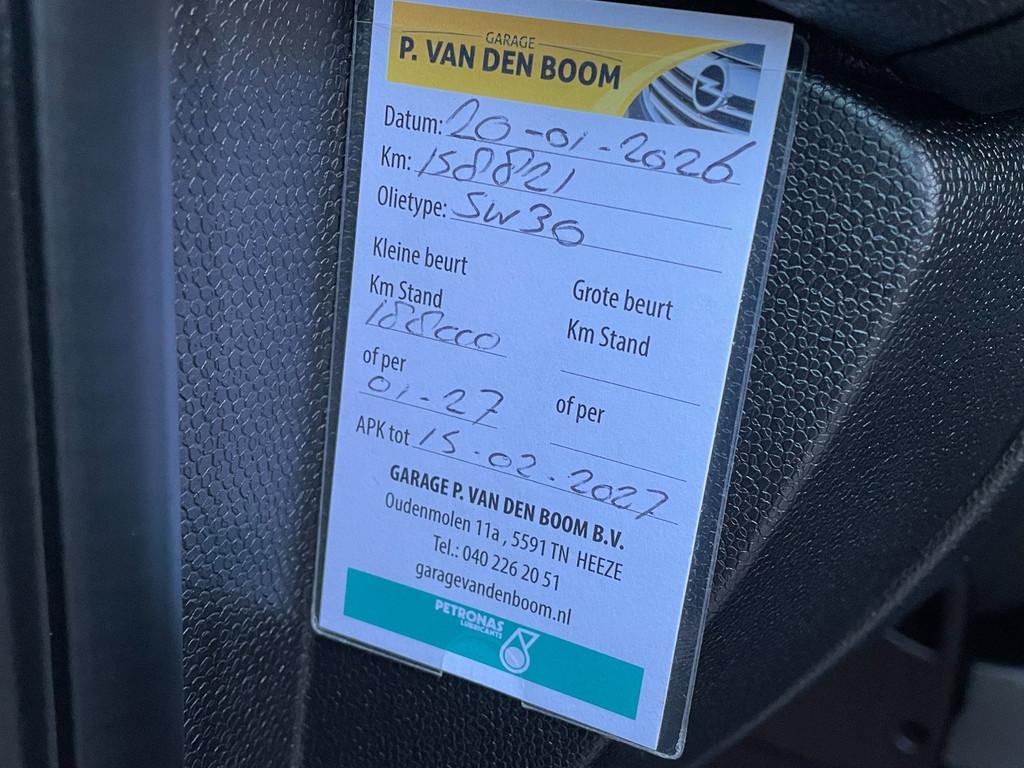 GARAGE
P. VAN DEN BOOM
Datum: 20-01-2026
Km: 158821
Olietype: 5W30
Kleine beurt
Km Stand
188000
of per
01-27
Grote beurt
Km Stand
of per
APK tot 15-02-2027
GARAGE P. VAN DEN BOOM B.V.
Oudenmolen 11a, 5591 TN HEEZE
Tel.: 040 226 20 51
garagevandenboom.nl
PETRONAS
LUBRICANTS